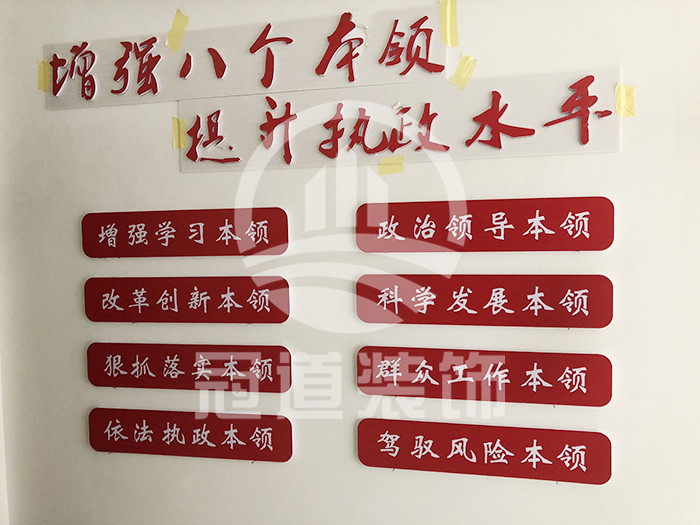 增强八个本领
提升执政水平
增强学习本领
政治领导本领
改革创新本领
科学发展本领
狠抓落实本领
群众工作本领
依法执政本领
驾驭风险本领
冠道装饰